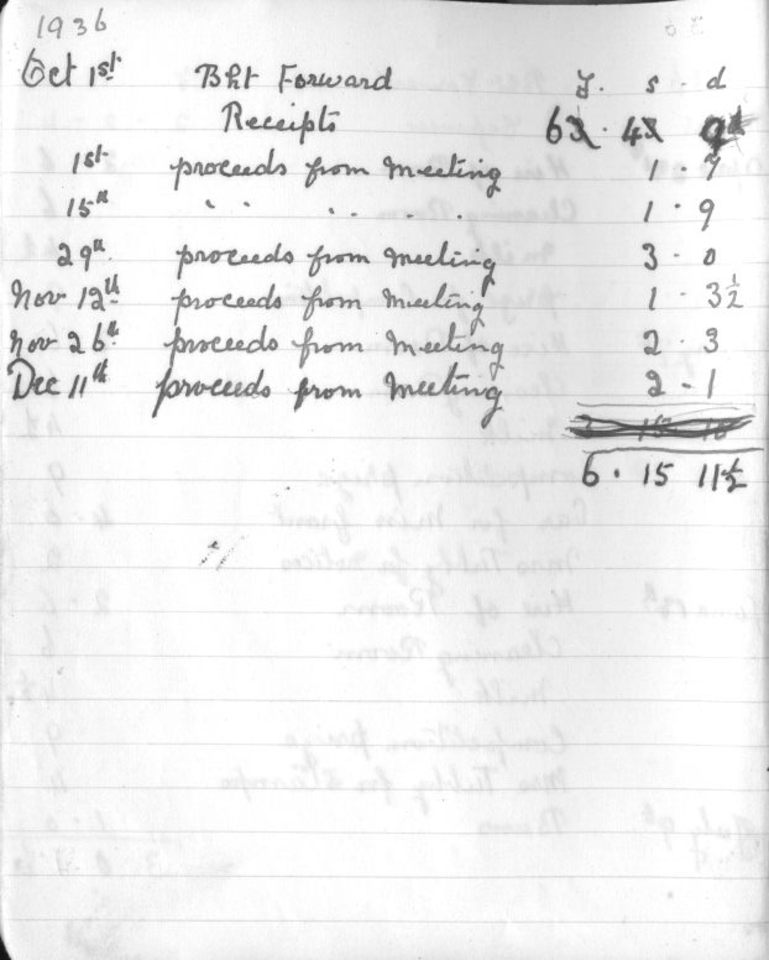 1936
Oct 1st Bht Forward £. s. d
Receipts 6 . 4
1st proceeds from meeting 1 . 7
15th " " " " " 1 . 9
29th proceeds from meeting 3 . 0
Nov 12th proceeds from Meeting 1 . 3½
Nov 26th proceeds from Meeting 2 . 3
Dec 11th proceeds from Meeting 2 - 1
6 . 15 11½